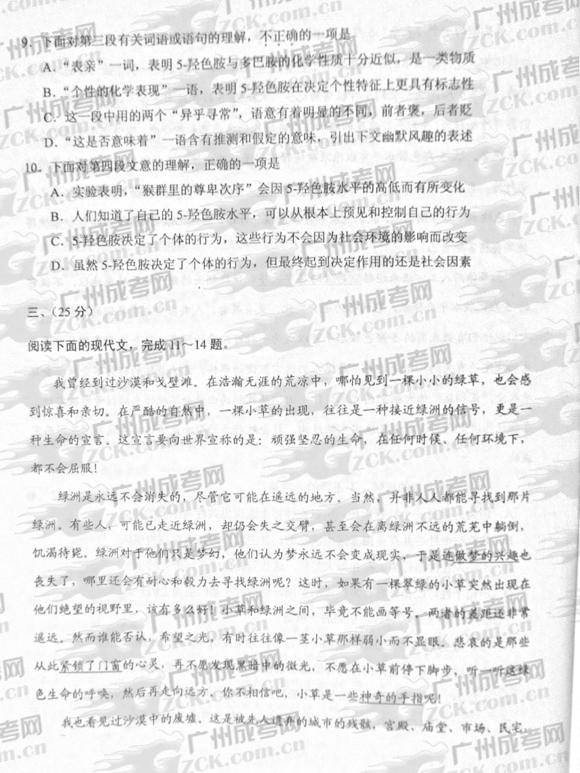 9. 下面对第三段有关词语或语句的理解，不正确的一项是
A. “表亲”一词，表明 5-羟色胺与多巴胺的化学性质十分近似，是一类物质
B. “个性的化学表现”一语，表明 5-羟色胺在决定个性特征上更具有标志性
C. 这一段中用的两个“异乎寻常”，语意有着明显的不同，前者褒，后者贬
D. “这是否意味着”一语含有推测和假定的意味，引出下文幽默风趣的表述
10. 下面对第四段文意的理解，正确的一项是
A. 实验表明，“猴群里的尊卑次序”会因 5-羟色胺水平的高低而有所变化
B. 人们知道了自己的 5-羟色胺水平，可以从根本上预见和控制自己的行为
C. 5-羟色胺决定了个体的行为，这些行为不会因为社会环境的影响而改变
D. 虽然 5-羟色胺决定了个体的行为，但最终起到决定作用的还是社会因素
三、（25 分）
阅读下面的现代文，完成 11～14 题。
我曾经到过沙漠和戈壁滩。在浩瀚无涯的荒凉中，哪怕见到一棵小小的绿草，也会感
到惊喜和亲切。在严酷的自然中，一棵小草的出现，往往是一种接近绿洲的信号，更是一
种生命的宣言。这宣言要向世界宣称的是：顽强坚忍的生命，在任何时候、任何环境下，
都不会屈服！
绿洲是永远不会消失的，尽管它可能在遥远的地方。当然，并非人人都能寻找到那片
绿洲。有些人，可能已走近绿洲，却仍失之交臂，甚至会在离绿洲不远的荒芜中躺倒，
饥渴待毙。绿洲对于他们只是梦幻，他们认为梦永远不会变成现实，于是连做梦的兴趣也
丧失了，哪里还会有耐心和毅力去寻找绿洲呢？这时，如果有一棵翠绿的小草突然出现在
他们绝望的视野里，该有多么好！小草和绿洲之间，毕竟不能画等号。两者的差距还非常
遥远。然而谁能否认，希望之光，有时往往像一茎小草那样弱小而不显眼。悲哀的是那些
从此紧锁了门窗的心灵，再不愿发现黑暗中的微光，不愿在小草前停下脚步，听一听这绿
色生命的呼唤，然后再走向远方。你不相信吧，小草是一些神奇的手指呢！
我也看见过沙漠中的废墟。这是被先人遗弃的城市的残骸，宫殿、庙堂、市场、民宅，
广州成考网
GZCK.com.cn